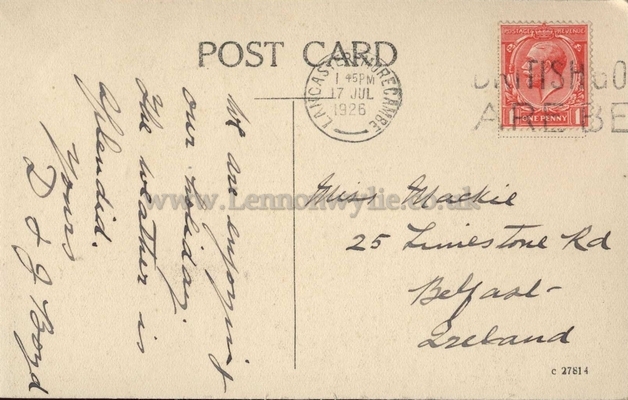 POST CARD
We are enjoying
our holiday.
The weather is
Splendid.
Yours
D & J Boyd
LANCASTER MORECAMBE
1 45PM
17 JUL
1926
BRITISH GO
ARE BE
POSTAGE REVENUE
1 ONE PENNY 1
Miss Mackie
25 Limestone Rd
Belfast
Ireland
C 27814
www.Lennonwylie.co.uk